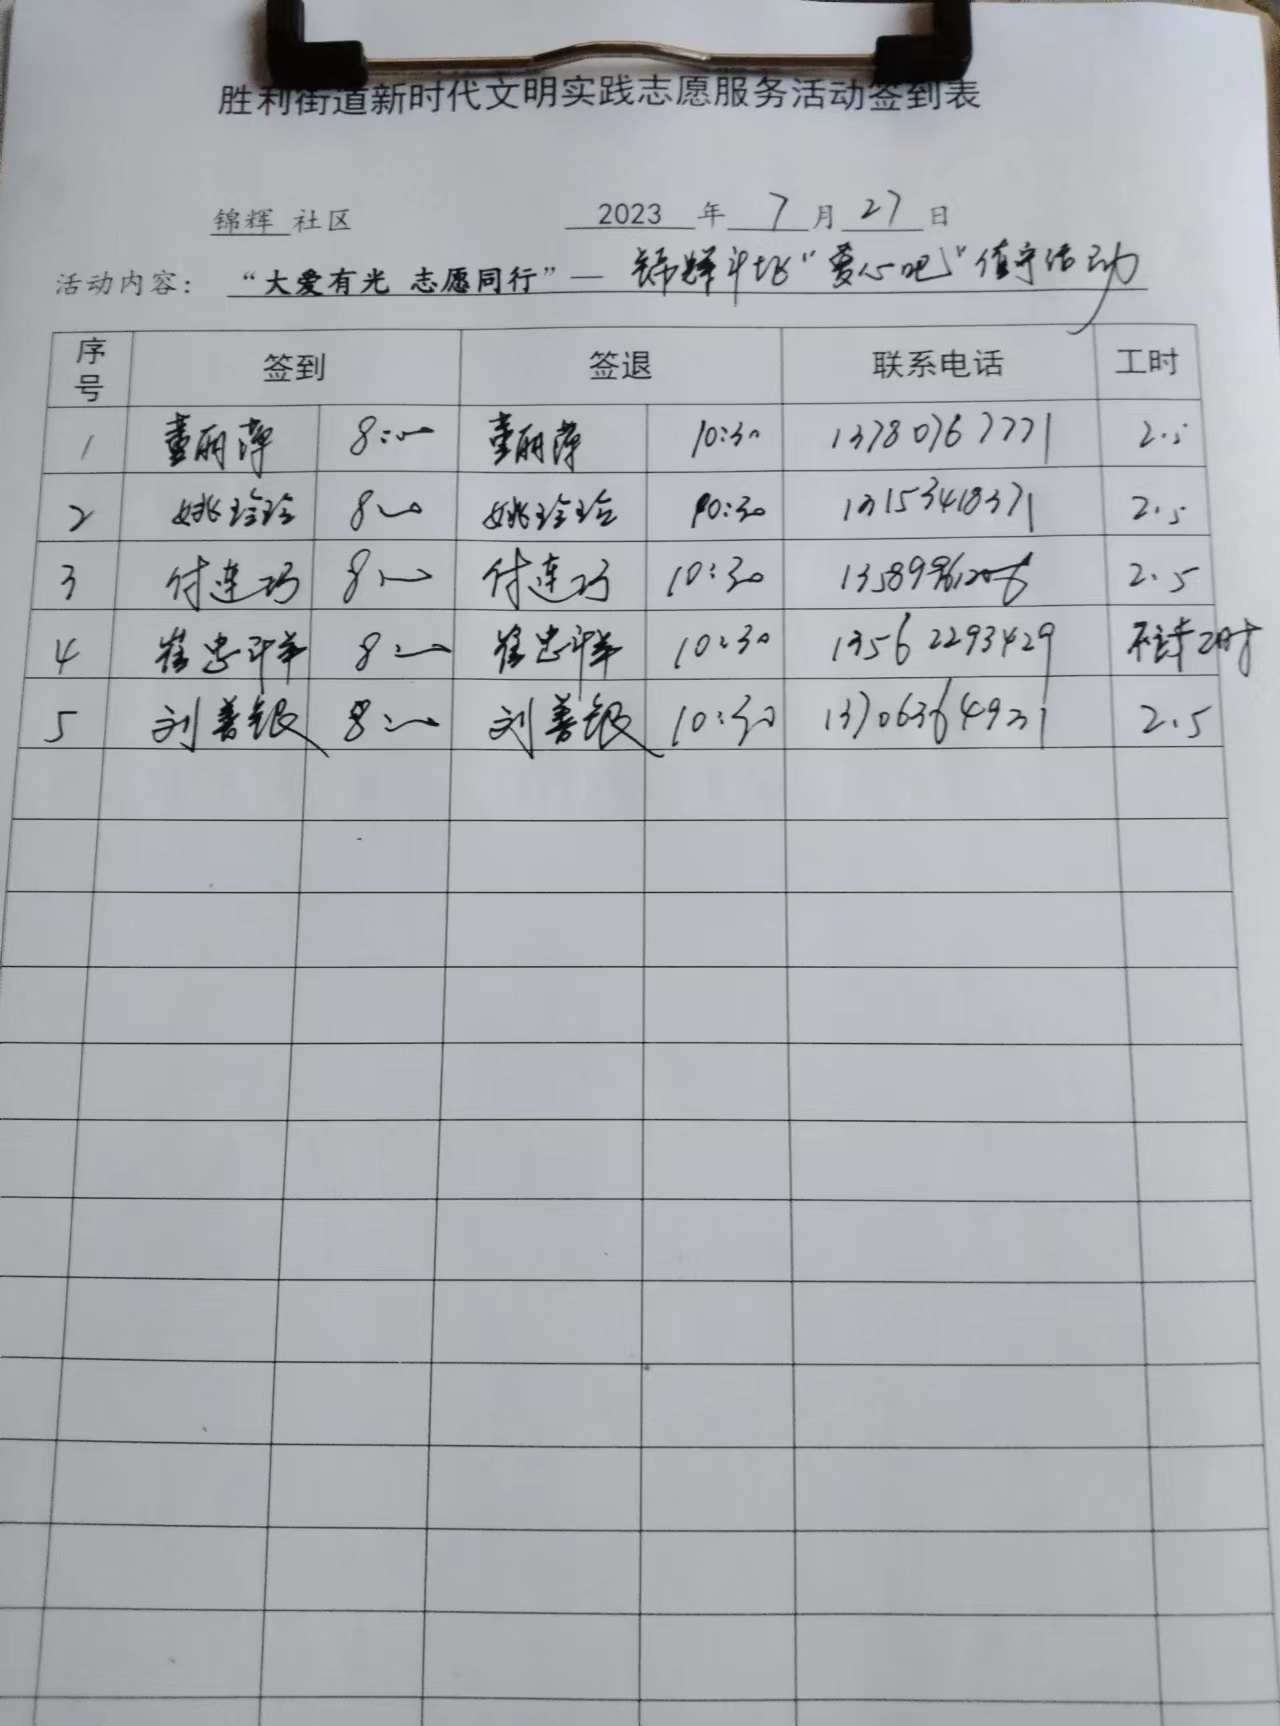 胜利街道新时代文明实践志愿服务活动签到表
锦辉 社区 2023 年 7 月 27 日
活动内容： “大爱有光 志愿同行”— 锦辉 “爱心吧” 值守活动
序号 签到 签退 联系电话 工时
1 董丽萍 8:00 董丽萍 10:30 13780767771 2.5
2 姚玲玲 8:00 姚玲玲 10:30 13153418371 2.5
3 付连巧 8:00 付连巧 10:30 2.5
4 崔忠祥 8:00 崔忠祥 10:30 13562293429 工时
5 刘善银 8:00 刘善银 10:30 13706364931 2.5